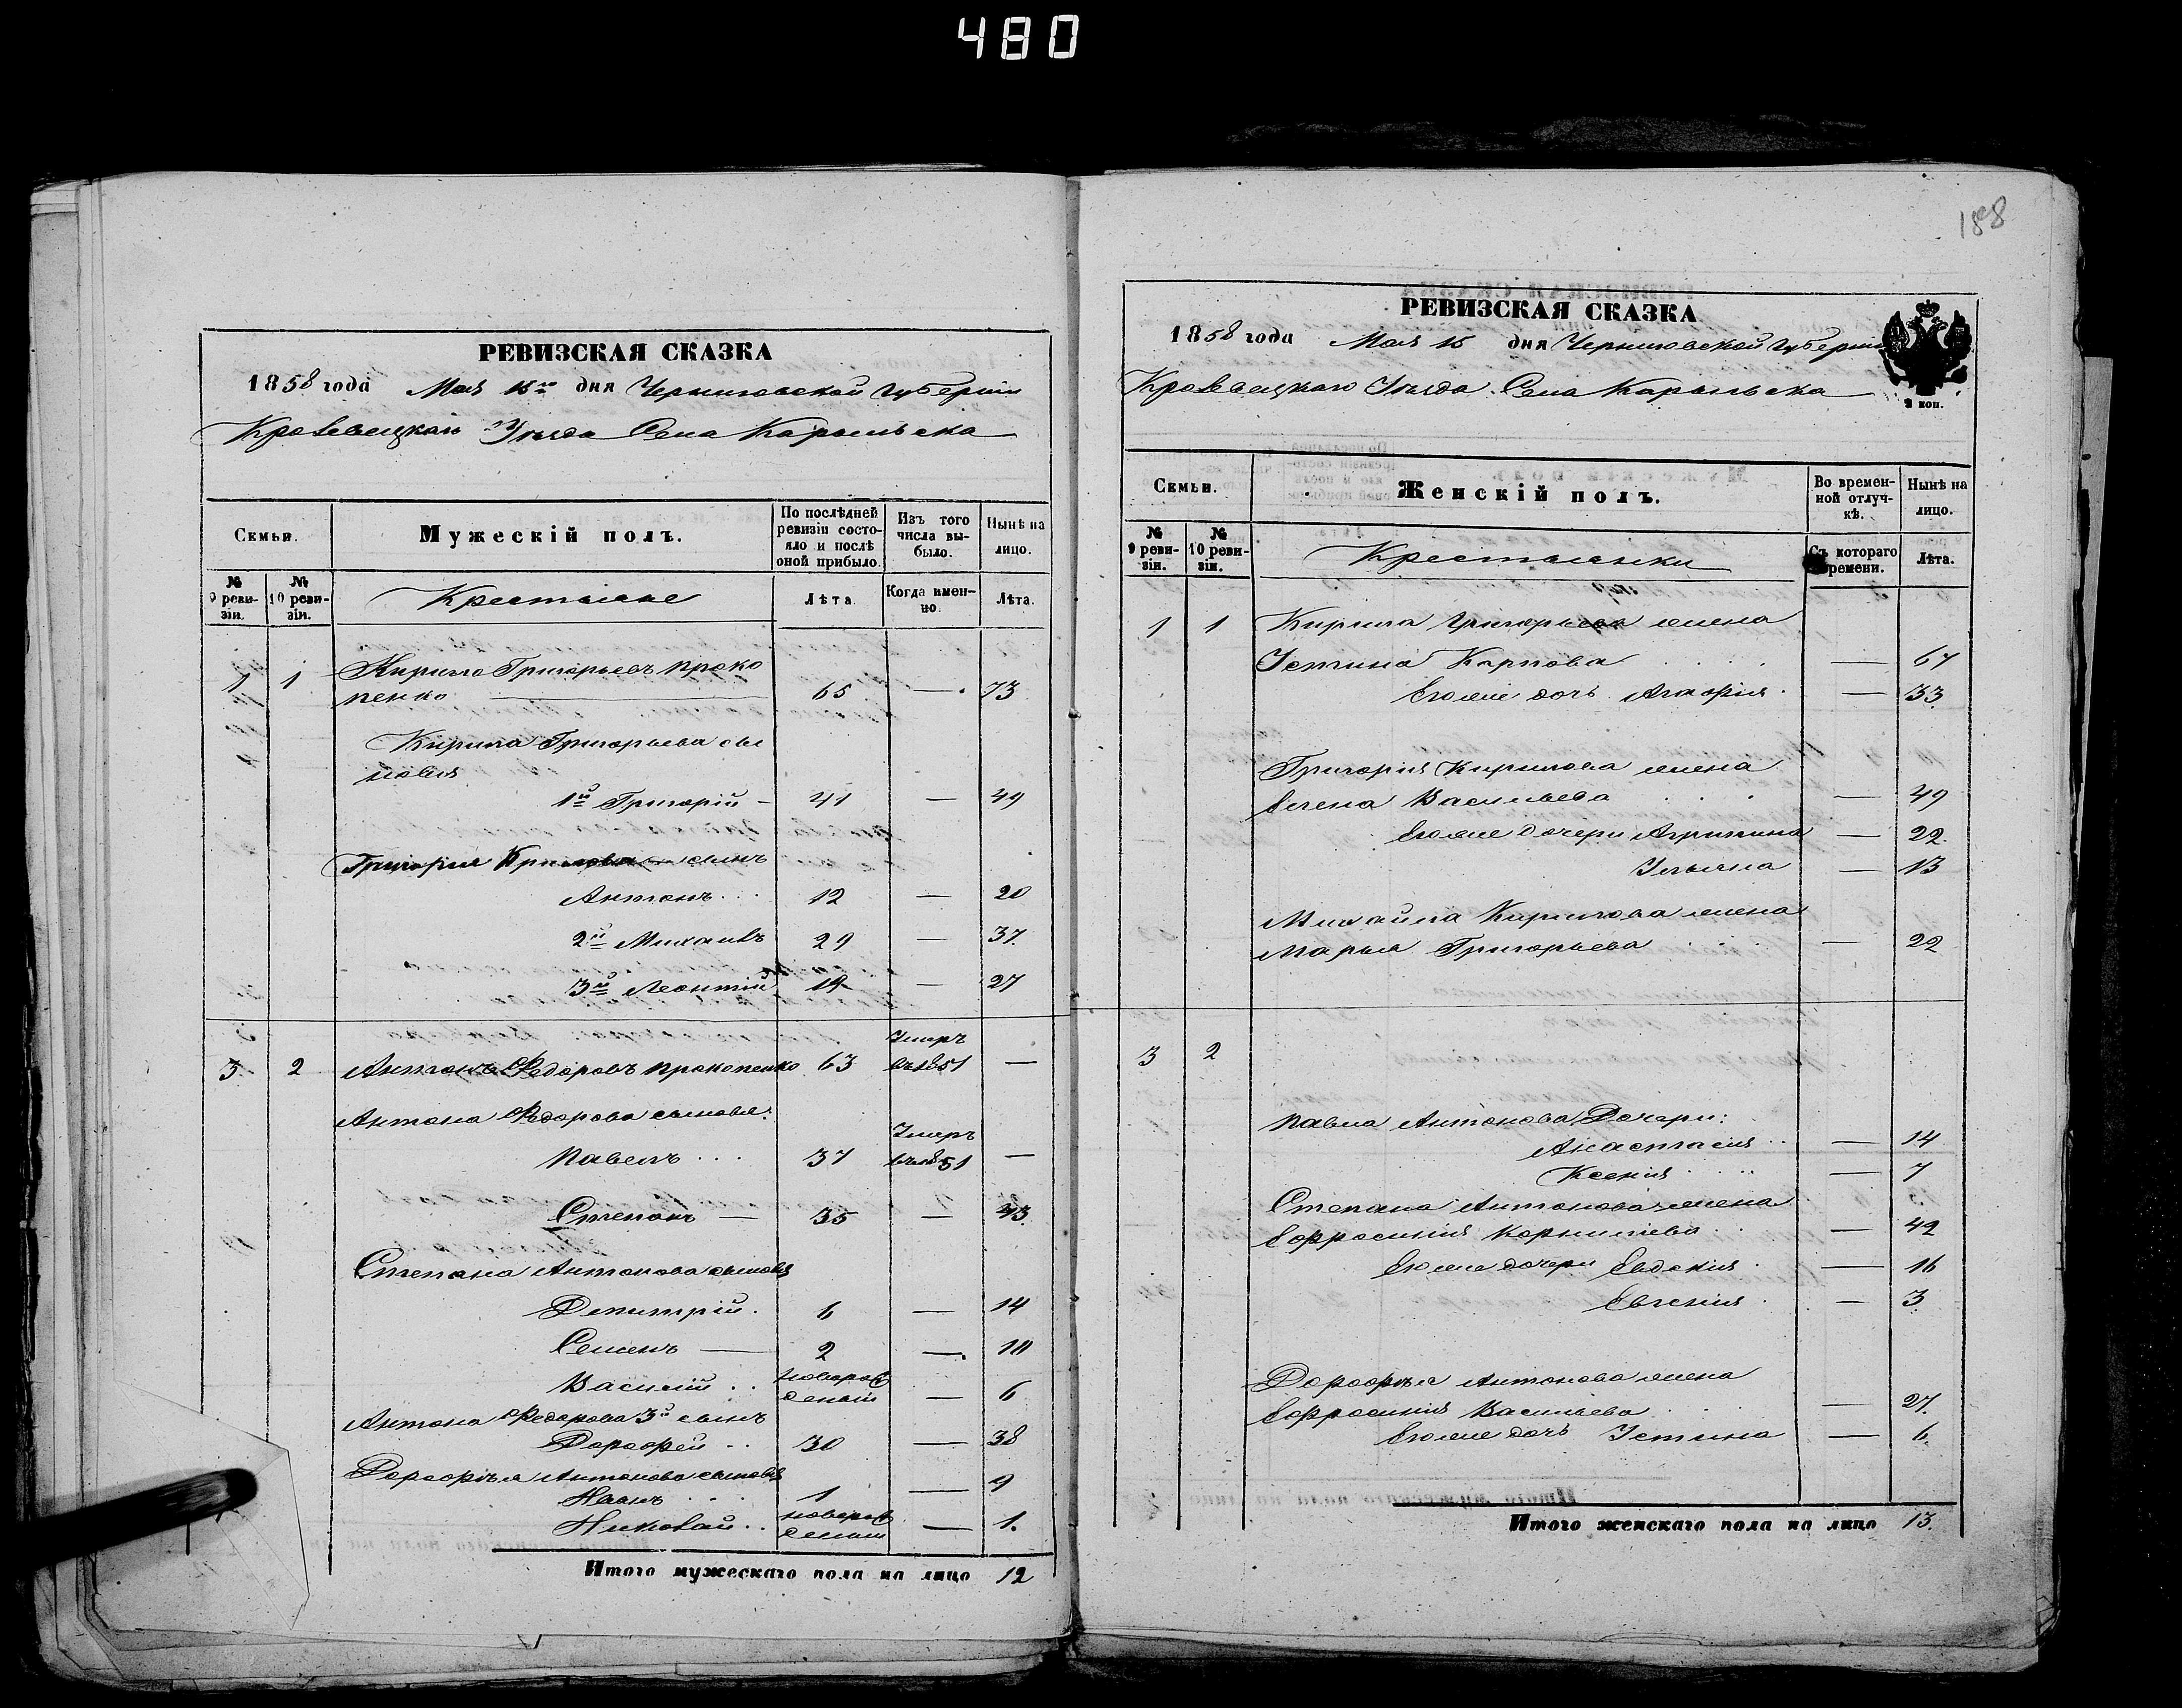 480
188
РЕВИЗСКАЯ СКАЗКА
1858 года Мая 15го дня Черниговской Губерніи
Кролевецкаго Уѣзда Села Карыльска
Семьи.
Мужескій полъ.
По послѣдней ревизіи состояло и послѣ оной прибыло.
Изъ того числа выбыло.
Нынѣ на лицо.
№ 9 ревизіи.
№ 10 ревизіи.
Крестьяне
Лѣта.
Когда именно.
Лѣта.
1 1 Кирило Григорьевъ Проко
пенко 65 — 73
Кирила Григорьева сы
новья
1й Григорій - 41 — 49
Григорія Кирилова сынъ
Антонъ 12 — 20
2й Михаилъ 29 — 37.
3й Леонтій 19 — 27
3 2 Антонъ Федоровъ Прокопенко 63 Умеръ въ 1851 —
Антона Федорова сыновья:
Павелъ 37 Умеръ въ 1851 —
Степанъ — 35 — 43.
Степана Антонова сыновья
Димитрій. 6 — 14
Семенъ — 2 — 10
Василій новорожденый — 6
Антона Федорова 3й сынъ
Дорофей 30 — 38
Дорофѣя Антонова сыновья
Иванъ 1 — 9
Николай новорожденый — 1.
Итого мужескаго пола на лицо 12
РЕВИЗСКАЯ СКАЗКА
1858 года Мая 15 дня Черниговской Губерніи
Кролевецкаго Уѣзда Села Карыльска
2 коп.
Семьи.
Женскій полъ.
Во временной отлучкѣ.
Нынѣ на лицо.
№ 9 ревизіи.
№ 10 ревизіи.
Крестьянки
Съ котораго времени.
Лѣта.
1 1 Кирила Григорьева жена
Устина Карпова — 67
Егоже дочь Агафія — 33.
Григорія Кирилова жена
Елена Васильева — 49
Егоже дочери Агрипина — 22.
Ульяна — 13
Михайла Кирилова жена
Марья Григорьева — 22
3 2
Павла Антонова Дочери:
Анастасія — 14
Ксенія — 7
Степана Антонова жена
Ефросинія Корнилієва — 42
Егоже дочери Евдокія — 16
Евгенія — 3
Дорофѣя Антонова жена
Ефросинія Васильева — 27.
Егоже дочь Устина — 6.
Итого женскаго пола на лицо 13.